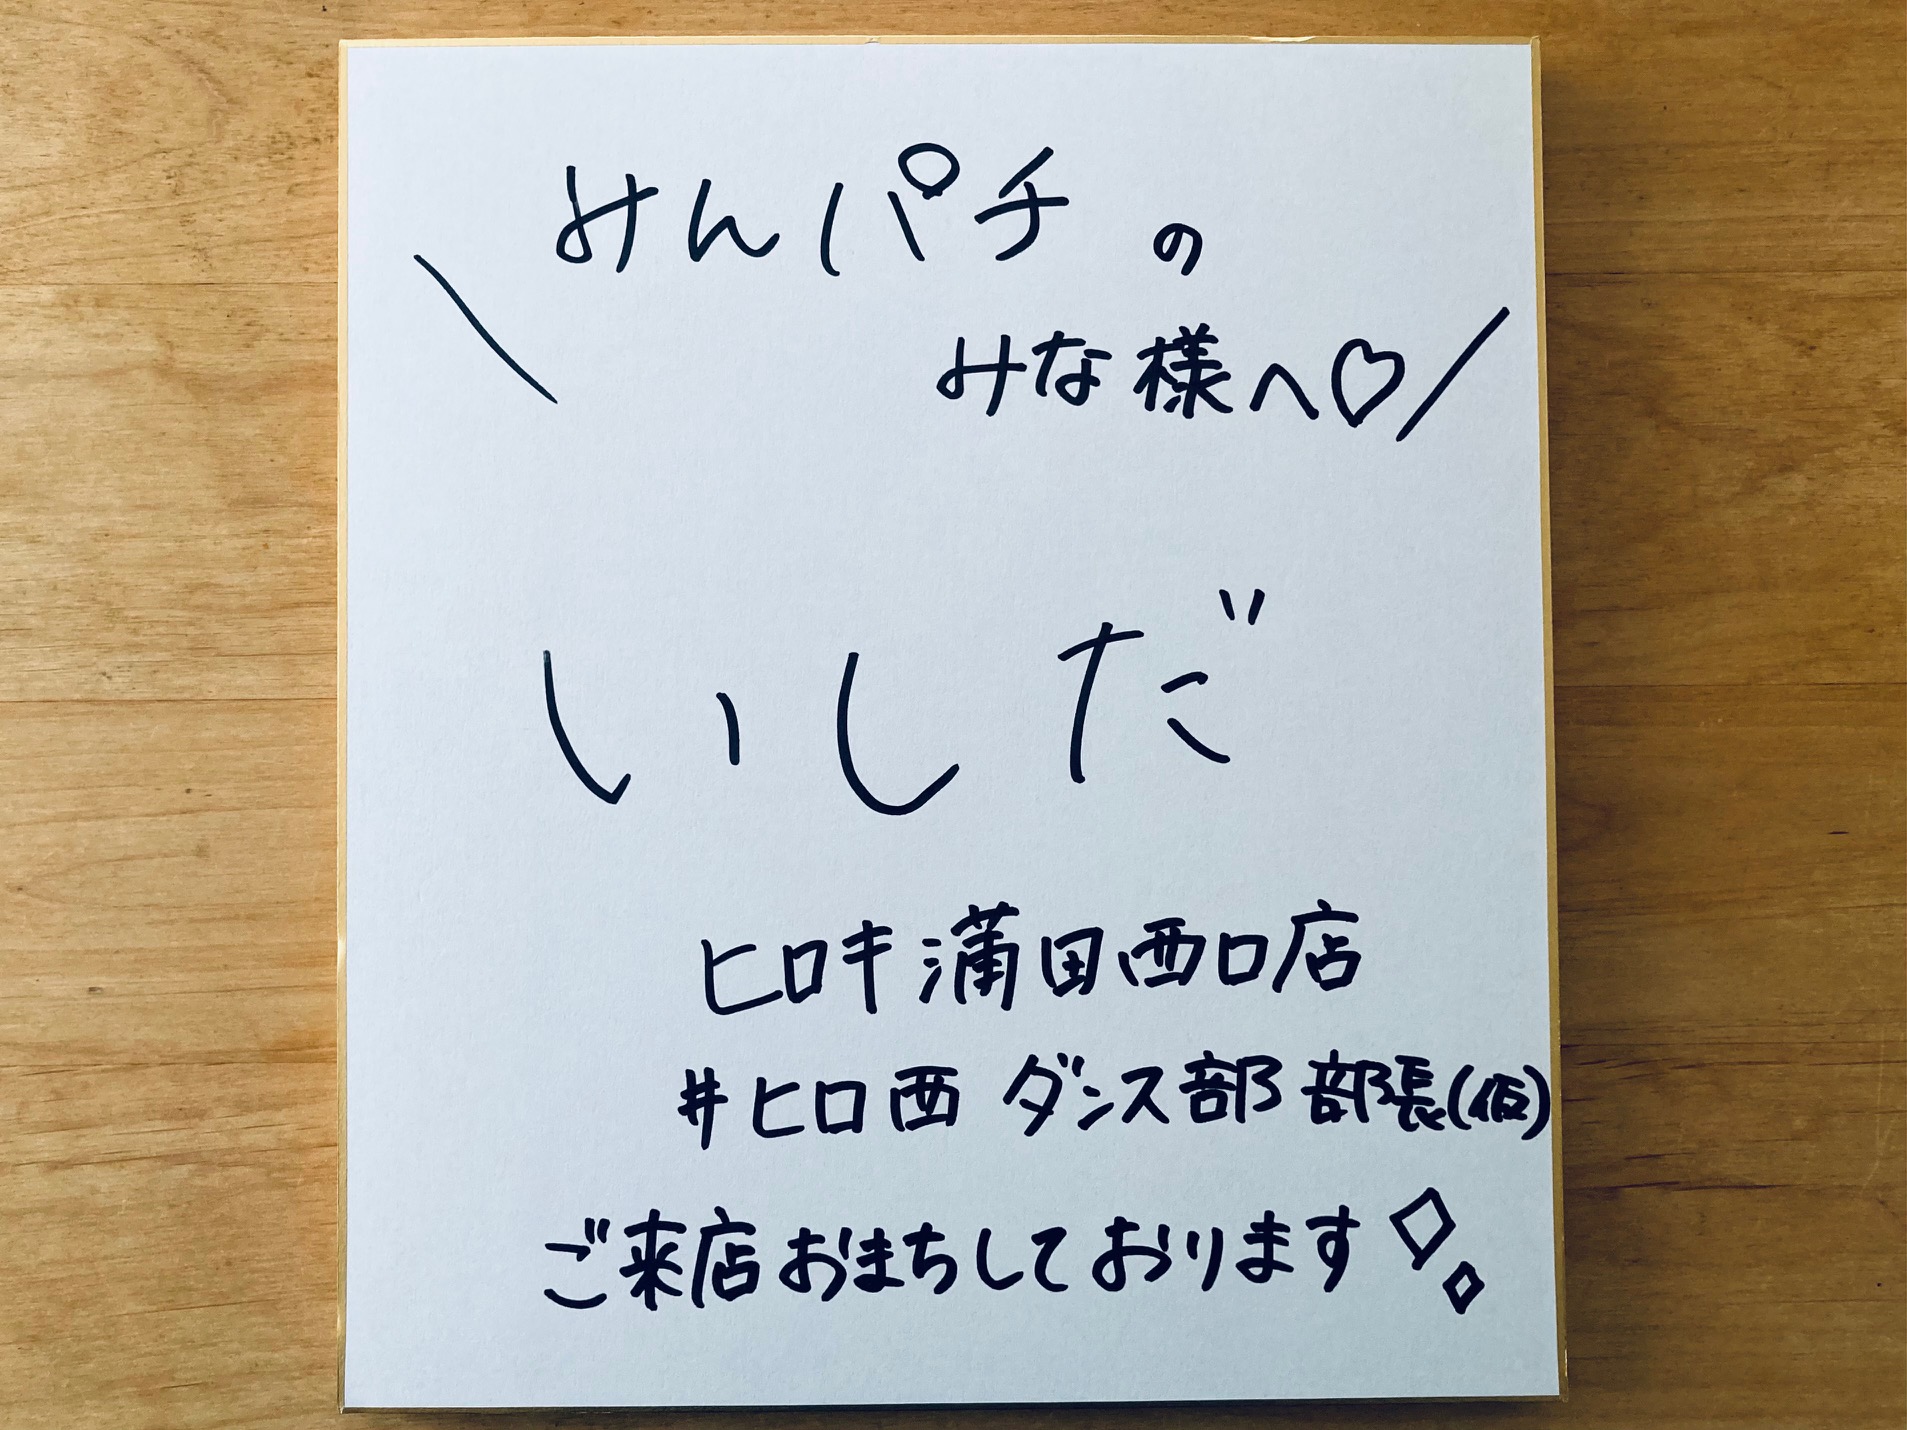 ＼みんパチの
みな様へ♡／
いしだ
ヒロキ蒲田西口店
#ヒロ西 ダンス部 部長(仮)
ご来店おまちしております